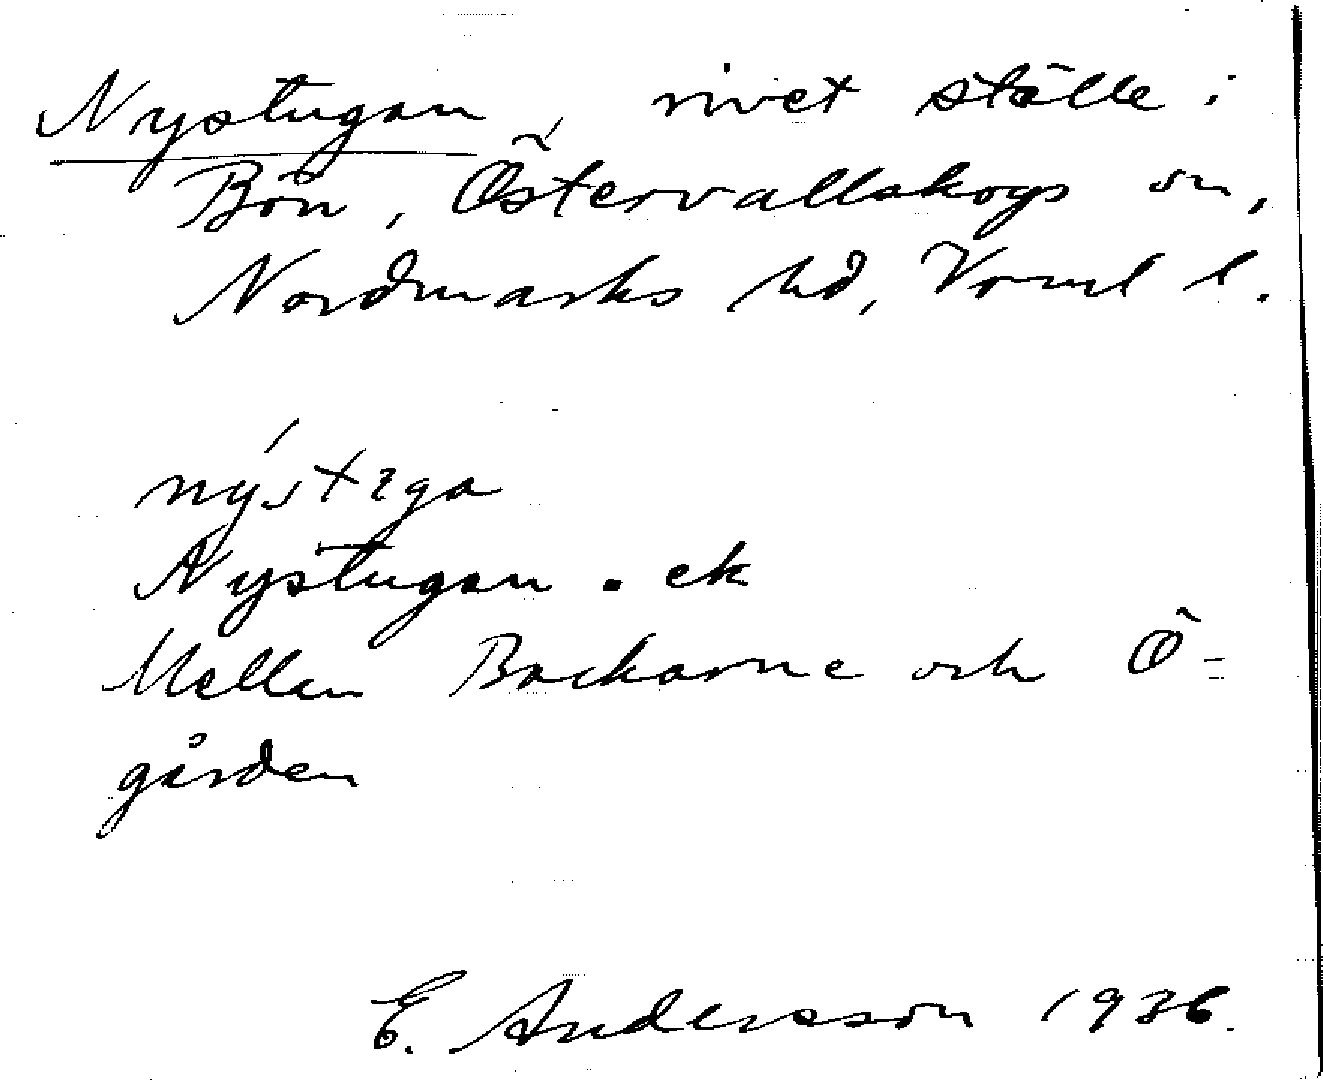 Nystugan, rivet ställe i
Bön, Östervallskogs sn,
Nordmarks hd, Värml l.
nýstɩga
Nystugan . ek
Mellan Backarne och Ö-
gården
E. Andersson 1936.